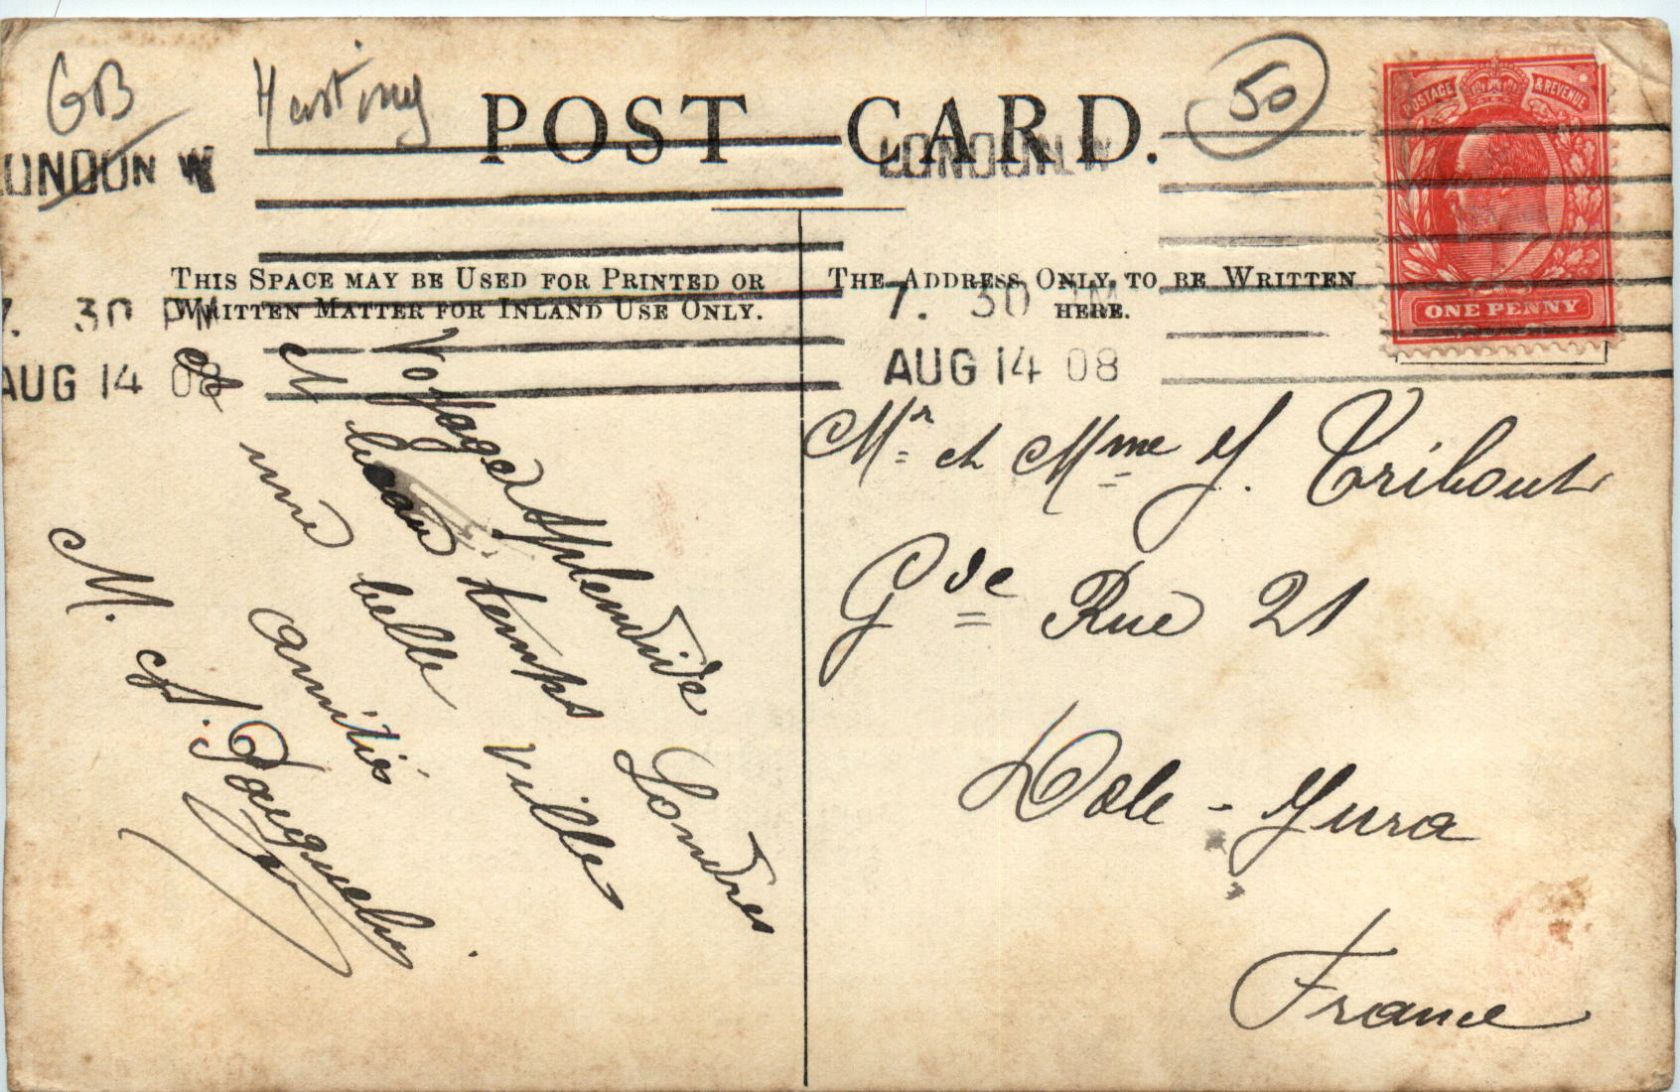 GB
Hastings
50
POST CARD.
LONDON W
LONDON. W
POSTAGE & REVENUE
ONE PENNY
THIS SPACE MAY BE USED FOR PRINTED OR
WRITTEN MATTER FOR INLAND USE ONLY.
THE ADDRESS ONLY, TO BE WRITTEN
HERE.
7. 30 PM
AUG 14 08
7. 30 PM
AUG 14 08
Voyage splendide
Londres
et beau temps
ville
et une belle
amitiés
M. et
Mr et Mme J. Tribout
Gde Rue 21
Dole - Jura
France